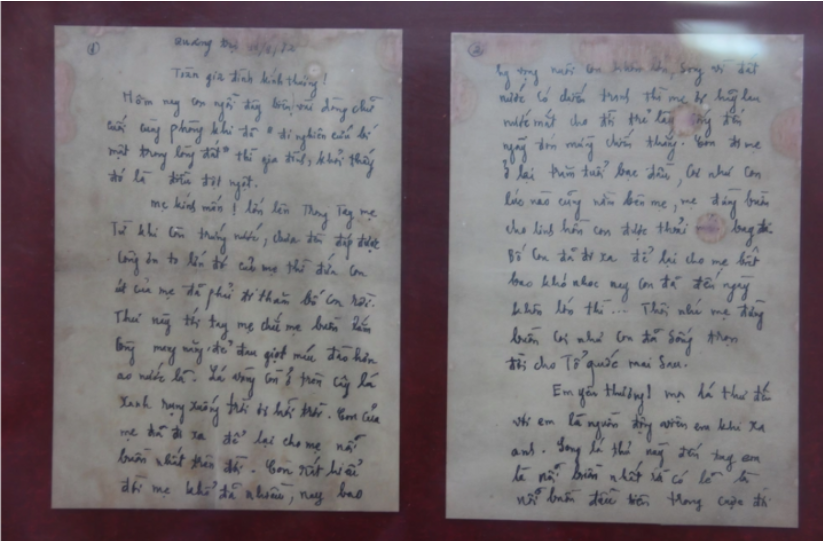 ①
Quảng Trị 11/9/72
Toàn gia đình kính thương!
Hôm nay con ngồi đây biên vài dòng chữ
cuối cùng phòng khi đã "đi nghiên cứu bí
mật trong lòng đất" thì gia đình khỏi thấy
đó là điều đột ngột.
Mẹ kính mến! lớn lên trong tay mẹ
Từ khi còn trứng nước, chưa đền đáp được
công ơn to lớn đó của mẹ thì đứa con
út của mẹ đã phải đi theo bố con rồi.
Thư này tới tay mẹ chắc mẹ buồn lắm
lòng mong nặng đẻ đau giọt máu đào hơn
ao nước lã. Lá vàng còn ở trên cây lá
xanh rụng xuống trời ơi hỡi trời. Con của
mẹ đã đi xa để lại cho mẹ nỗi
buồn nhất trên đời. Con rất hiểu
đời mẹ khổ đã nhiều, nay bao
②
hy vọng nuôi con khôn lớn, song vì đất
nước có chiến tranh thì mẹ ơi hãy lau
nước mắt cho đời trẻ lại sống đến
ngày đón mừng chiến thắng. Con đi mẹ
ở lại trăm tuổi bạc đầu, coi như con
lúc nào cũng nằm bên mẹ, mẹ đừng buồn
cho linh hồn con được thoải mái bay đi
Bố con đã đi xa để lại cho mẹ biết
bao khó nhọc nay con đã đến ngày
khôn lớn thì... Thôi nhé mẹ đừng
buồn coi như con đã sống trọn
đời cho Tổ quốc mai sau.
Em yêu thương! mọi lá thư đến
với em là nguồn động viên em khi xa
anh. Song lá thư này đến tay em
là nỗi buồn nhất và có lẽ là
nỗi buồn đầu tiên trong cuộc đời